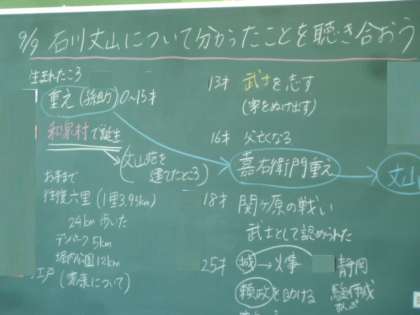 9/9 石川丈山について分かったことを聴き合おう
生まれたころ
重之(孫助)0~15才
和泉村で誕生
(丈山苑を
建てたところ)
お寺まで
往復六里(1里3.93km)
24km歩いた
デンパーク5km
堀内公園12km
江戸(家康について)
13才 武士を志す
(家をぬけ出す)
16才 父亡くなる
嘉右衛門重之
丈山
18才 関ヶ原の戦い
武士として認められた
25才 城→火事 静岡
頼政を助ける 駿府城